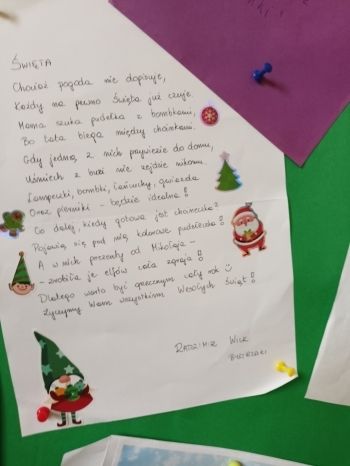 ŚWIĘTA
Chociaż pogoda nie dopisuje,
Każdy na pewno Święta już czuje.
Mama szuka pudełka z bombkami,
Bo tata biega między choinkami.
Gdy jedną z nich przywiezie do domu,
Uśmiech z buzi nie zejdzie nikomu.
Lampeczki, bombki, łańcuchy, gwiazda
Oraz pierniki - będzie idealna!!
Co dalej, kiedy gotowa jest choineczka?
Pojawią się pod nią kolorowe pudełeczka!!
A w nich prezenty od Mikołaja -
- zrobiła je elfów cała zgraja!!
Dlatego warto być grzecznym cały rok
Życzymy Wam wszystkim Wesołych Świąt!!
RADZIMIR WILK